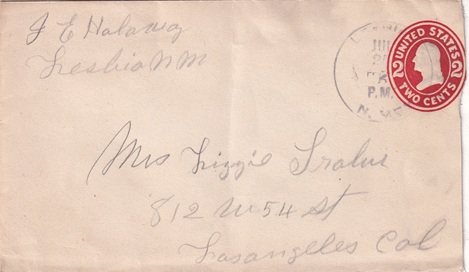 J E
Lesbia N M
JUL
P.M.
N. MEX
UNITED STATES
2 2
TWO CENTS
Mrs Lizzie
812 W 54 St
Losangeles Cal